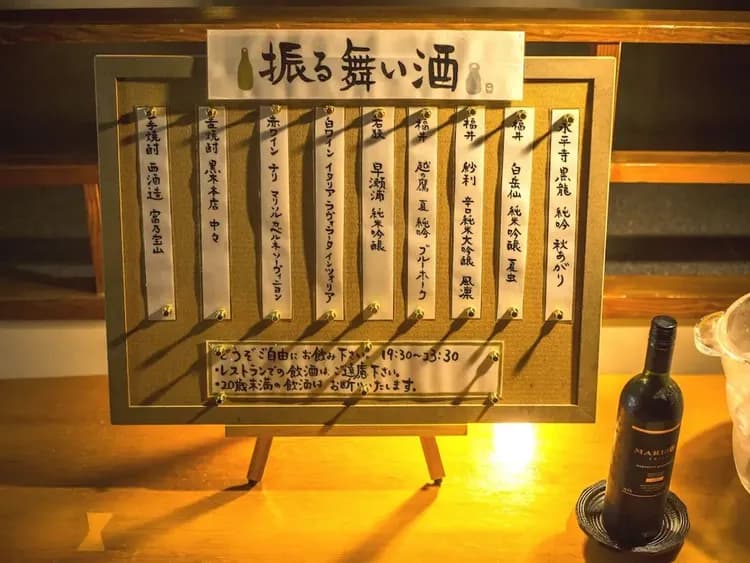 振る舞い酒
永平寺 黒龍 純吟 秋あがり
福井 白岳仙 純米吟醸 夏虫
福井 紗利 辛口純米大吟醸 風凛
福井 越の鷹 夏 純吟 ブルーホーク
若狭 早瀬浦 純米吟醸
白ワイン イタリア ラヴォラータ インツォリア
赤ワイン チリ マリソル カベルネソーヴィニヨン
麦焼酎 黒木本店 中々
芋焼酎 西酒造 富乃宝山
・どうぞご自由にお飲み下さい。 19:30〜23:30
・レストランでの飲酒は、ご遠慮下さい。
・20歳未満の飲酒は お断りいたします。